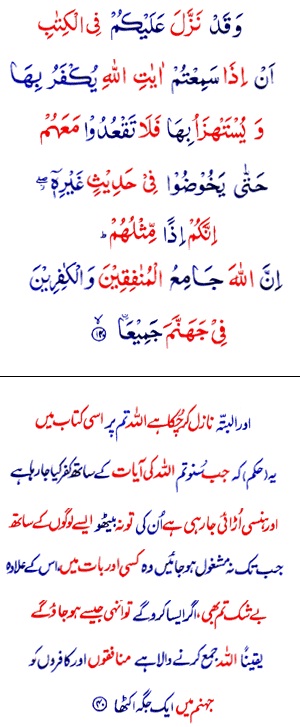 وَقَدْ نَزَّلَ عَلَيْكُمْ فِى الْكِتٰبِ
اَنْ اِذَا سَمِعْتُمْ اٰيٰتِ اللّٰهِ يُكْفَرُ بِهَا
وَ يُسْتَهْزَاُ بِهَا فَلَا تَقْعُدُوْا مَعَهُمْ
حَتّٰى يَخُوْضُوْا فِىْ حَدِيْثٍ غَيْرِهٖۤ ۖ
اِنَّكُمْ اِذًا مِّثْلُهُمْ ؕ
اِنَّ اللّٰهَ جَامِعُ الْمُنٰفِقِيْنَ وَالْكٰفِرِيْنَ
فِىْ جَهَنَّمَ جَمِيْعَاۨ ۙ﴿۱۴۰﴾
اور البتّہ نازل کر چُکا ہے اللہ تم پر اسی کتاب میں
یہ (حکم) کہ جب سُنو تم اللہ کی آیات کے ساتھ کفر کیا جا رہا ہے
اور ہنسی اُڑائی جا رہی ہے اُن کی تو نہ بیٹھو ایسے لوگوں کے ساتھ
جب تک نہ مشغول ہو جائیں وہ کسی اور بات میں، اس کے علاوہ
بے شک تم بھی، اگر ایسا کرو گے تو انہی جیسے ہو جاؤ گے
یقیناً اللہ جمع کرنے والا ہے منافقوں اور کافروں کو
جہنم میں ایک جگہ اکٹھا ﴿۱۴۰﴾